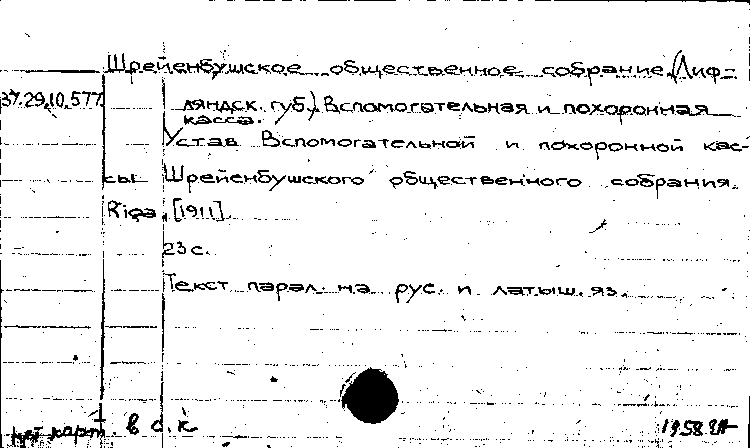 Шрейенбушское общественное собрание.(Лиф-
37.29.10.577 ляндск. губ.). Вспомогательная и похоронная
касса.
Устав Вспомогательной и похоронной кас-
сы Шрейенбушского общественного собрания.
Riga. [1911].
23 с.
Текст парал. на рус. и латыш. яз.
карт. в с.к